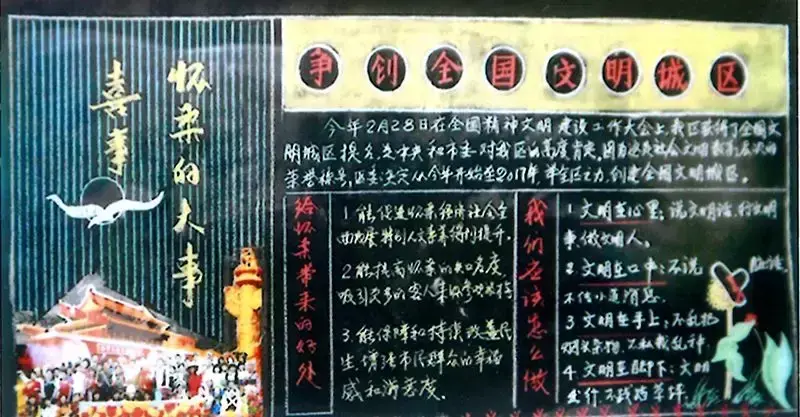 怀柔的大事
喜事
争创全国文明城区
今年2月28日在全国精神文明建设工作大会上,我区获得了全国文
明城区提名,是中央和市委对我区的高度肯定。因为这是社会文明最高层次的
荣誉称号,区委决定从今年开始至2017年,举全区之力,创建全国文明城区。
给怀柔带来的好处
1.能促进怀柔经济社会全
面发展特别人文素养得到提升。
2.能提高怀柔的知名度
吸引更多的客人来怀
3.能保障和持续改善民
生,增强市民群众的幸福
感和满意度。
我们应该怎么做
1.文明在心里:说文明话,行文明
事,做文明人。
2.文明在口中:不说脏话,
不传小道消息。
3.文明在手上:不乱扔
烟头杂物,
4.文明在脚下:文明
出行不践踏草坪